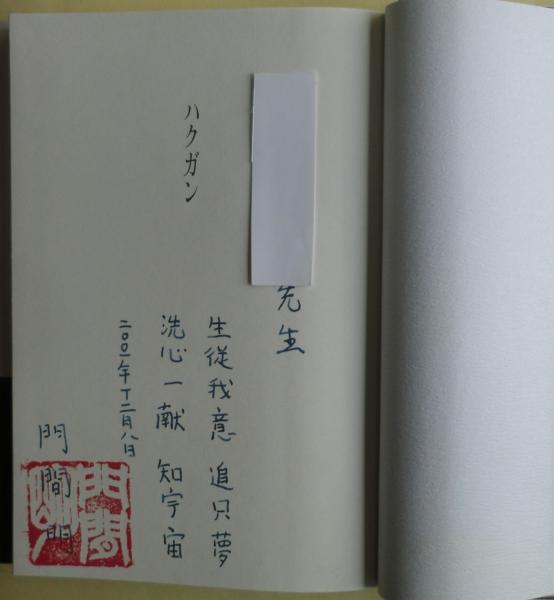 ハクガン
先生
生從我意 追只夢
洗心一献 知宇宙
二〇〇一年十二月八日
門間門